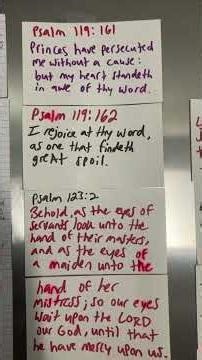 Psalm 119:161
Princes have persecuted
me without a cause:
but my heart standeth
in awe of thy word.
Psalm 119:162
I rejoice at thy word,
as one that findeth
great spoil.
Psalm 123:2
Behold, as the eyes of
servants look unto the
hand of their masters,
and as the eyes of
a maiden unto the
hand of her
mistress; so our eyes
wait upon the LORD
our God, until that
he have mercy upon us.